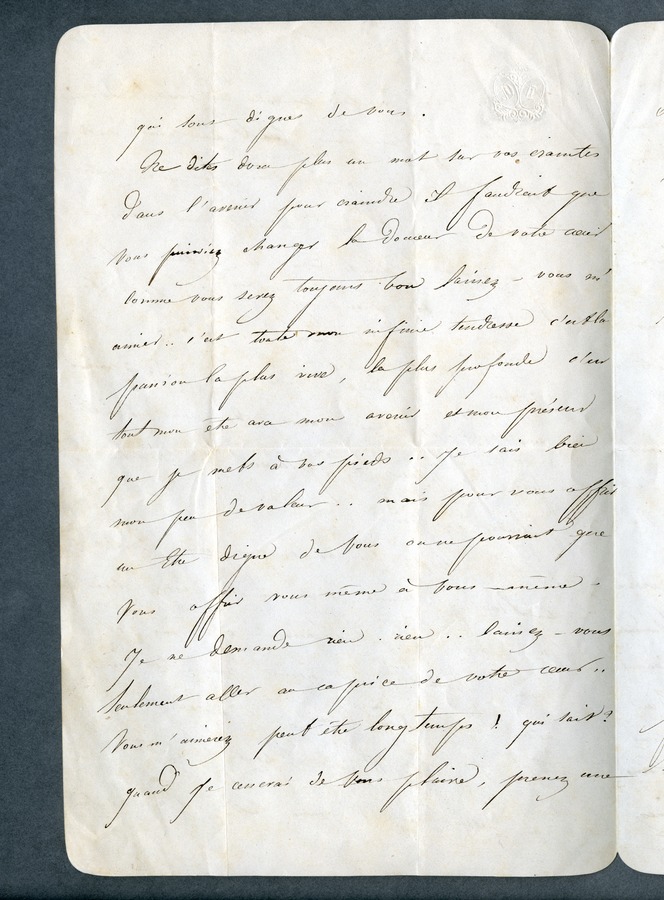 qui sont dignes de vous.
Ne dites donc plus un mot sur vos craintes
dans l'avenir pour craindre il faudrait que
vous puissiez changer la douceur de votre cœur
comme vous serez toujours bon laissez-vous m'
aimer.. c'est toute mon infinie tendresse c'est la
passion la plus vive, la plus profonde c'est
tout mon être avec mon avenir et mon présent
que je mets à vos pieds.. Je sais bien
mon peu de valeur.. mais pour vous offrir
un Etre digne de Vous on ne pourrait que
Vous offrir vous même à Vous-même.
Je ne demande rien. rien.. laissez-vous
seulement aller au caprice de votre cœur..
Vous m'aimerez peut être longtemps! qui sait?
quand je cesserai de vous plaire, prenez une